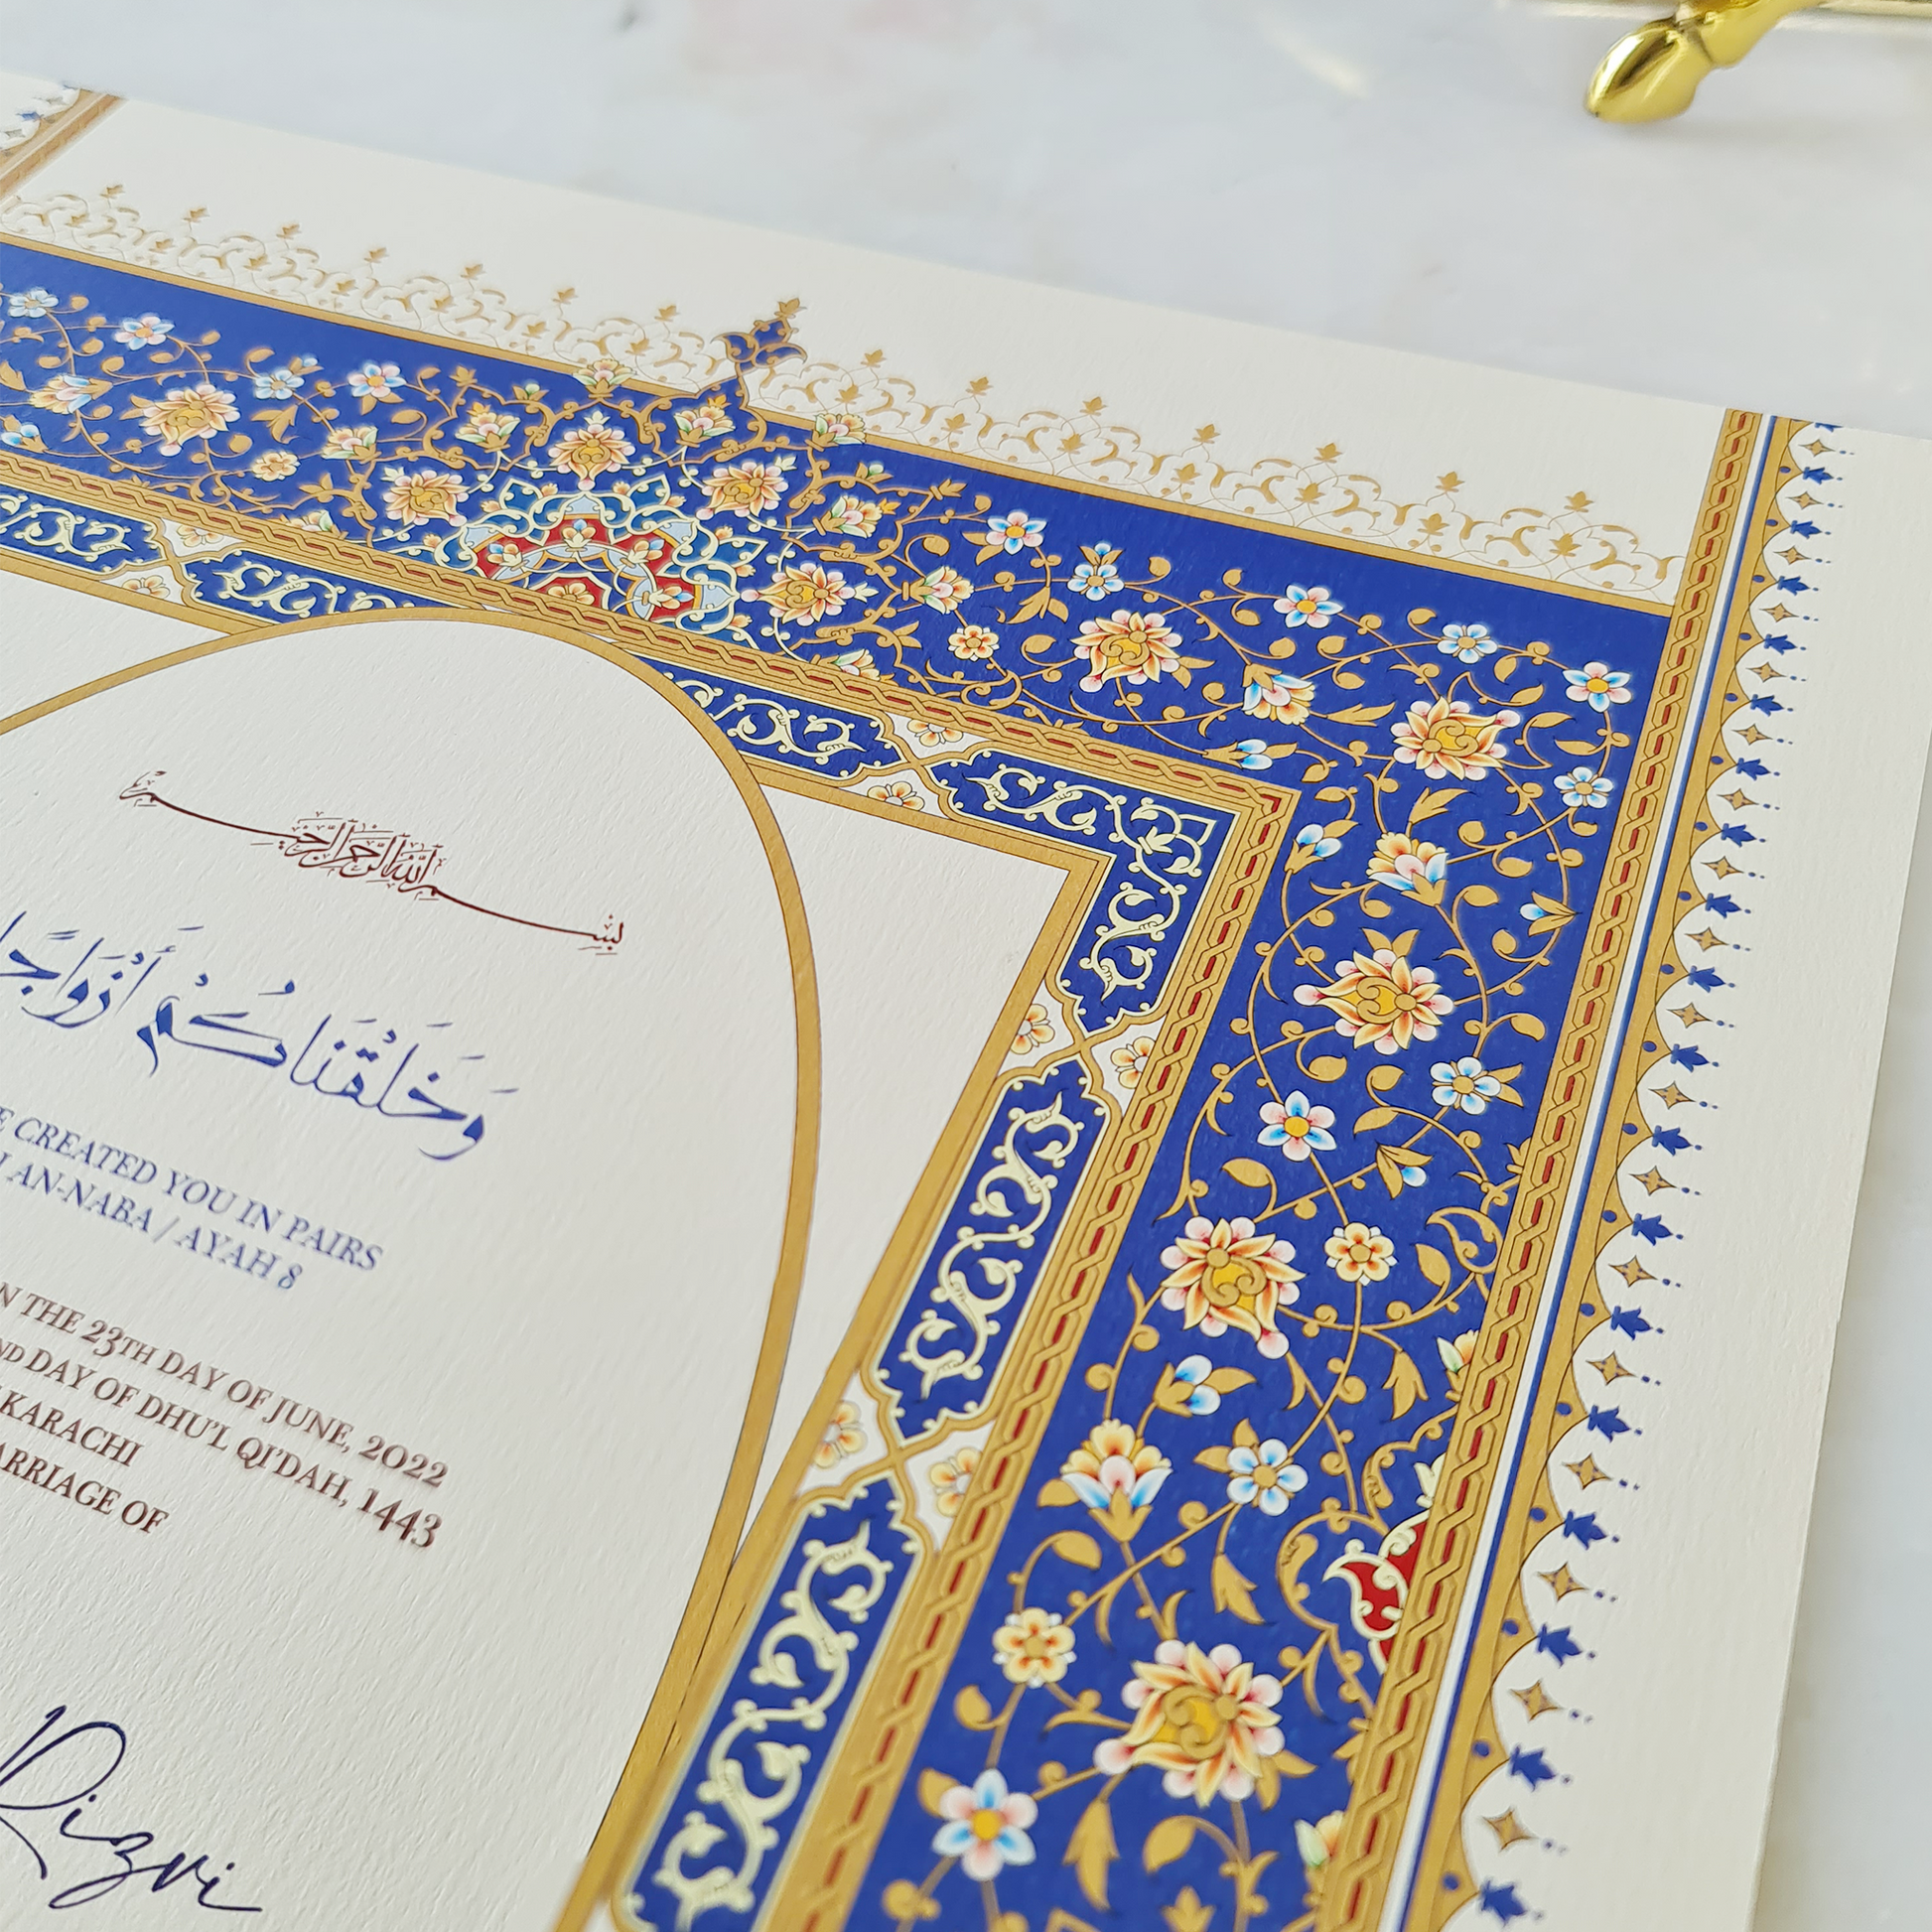 بسم الله الرحمن الرحيم
وَخَلَقْنَاكُمْ أَزْوَاجًا
CREATED YOU IN PAIRS
AN-NABA / AYAH 8
THE 23TH DAY OF JUNE, 2022
ND DAY OF DHU'L QI'DAH, 1443
KARACHI
ARRIAGE OF
Rizvi